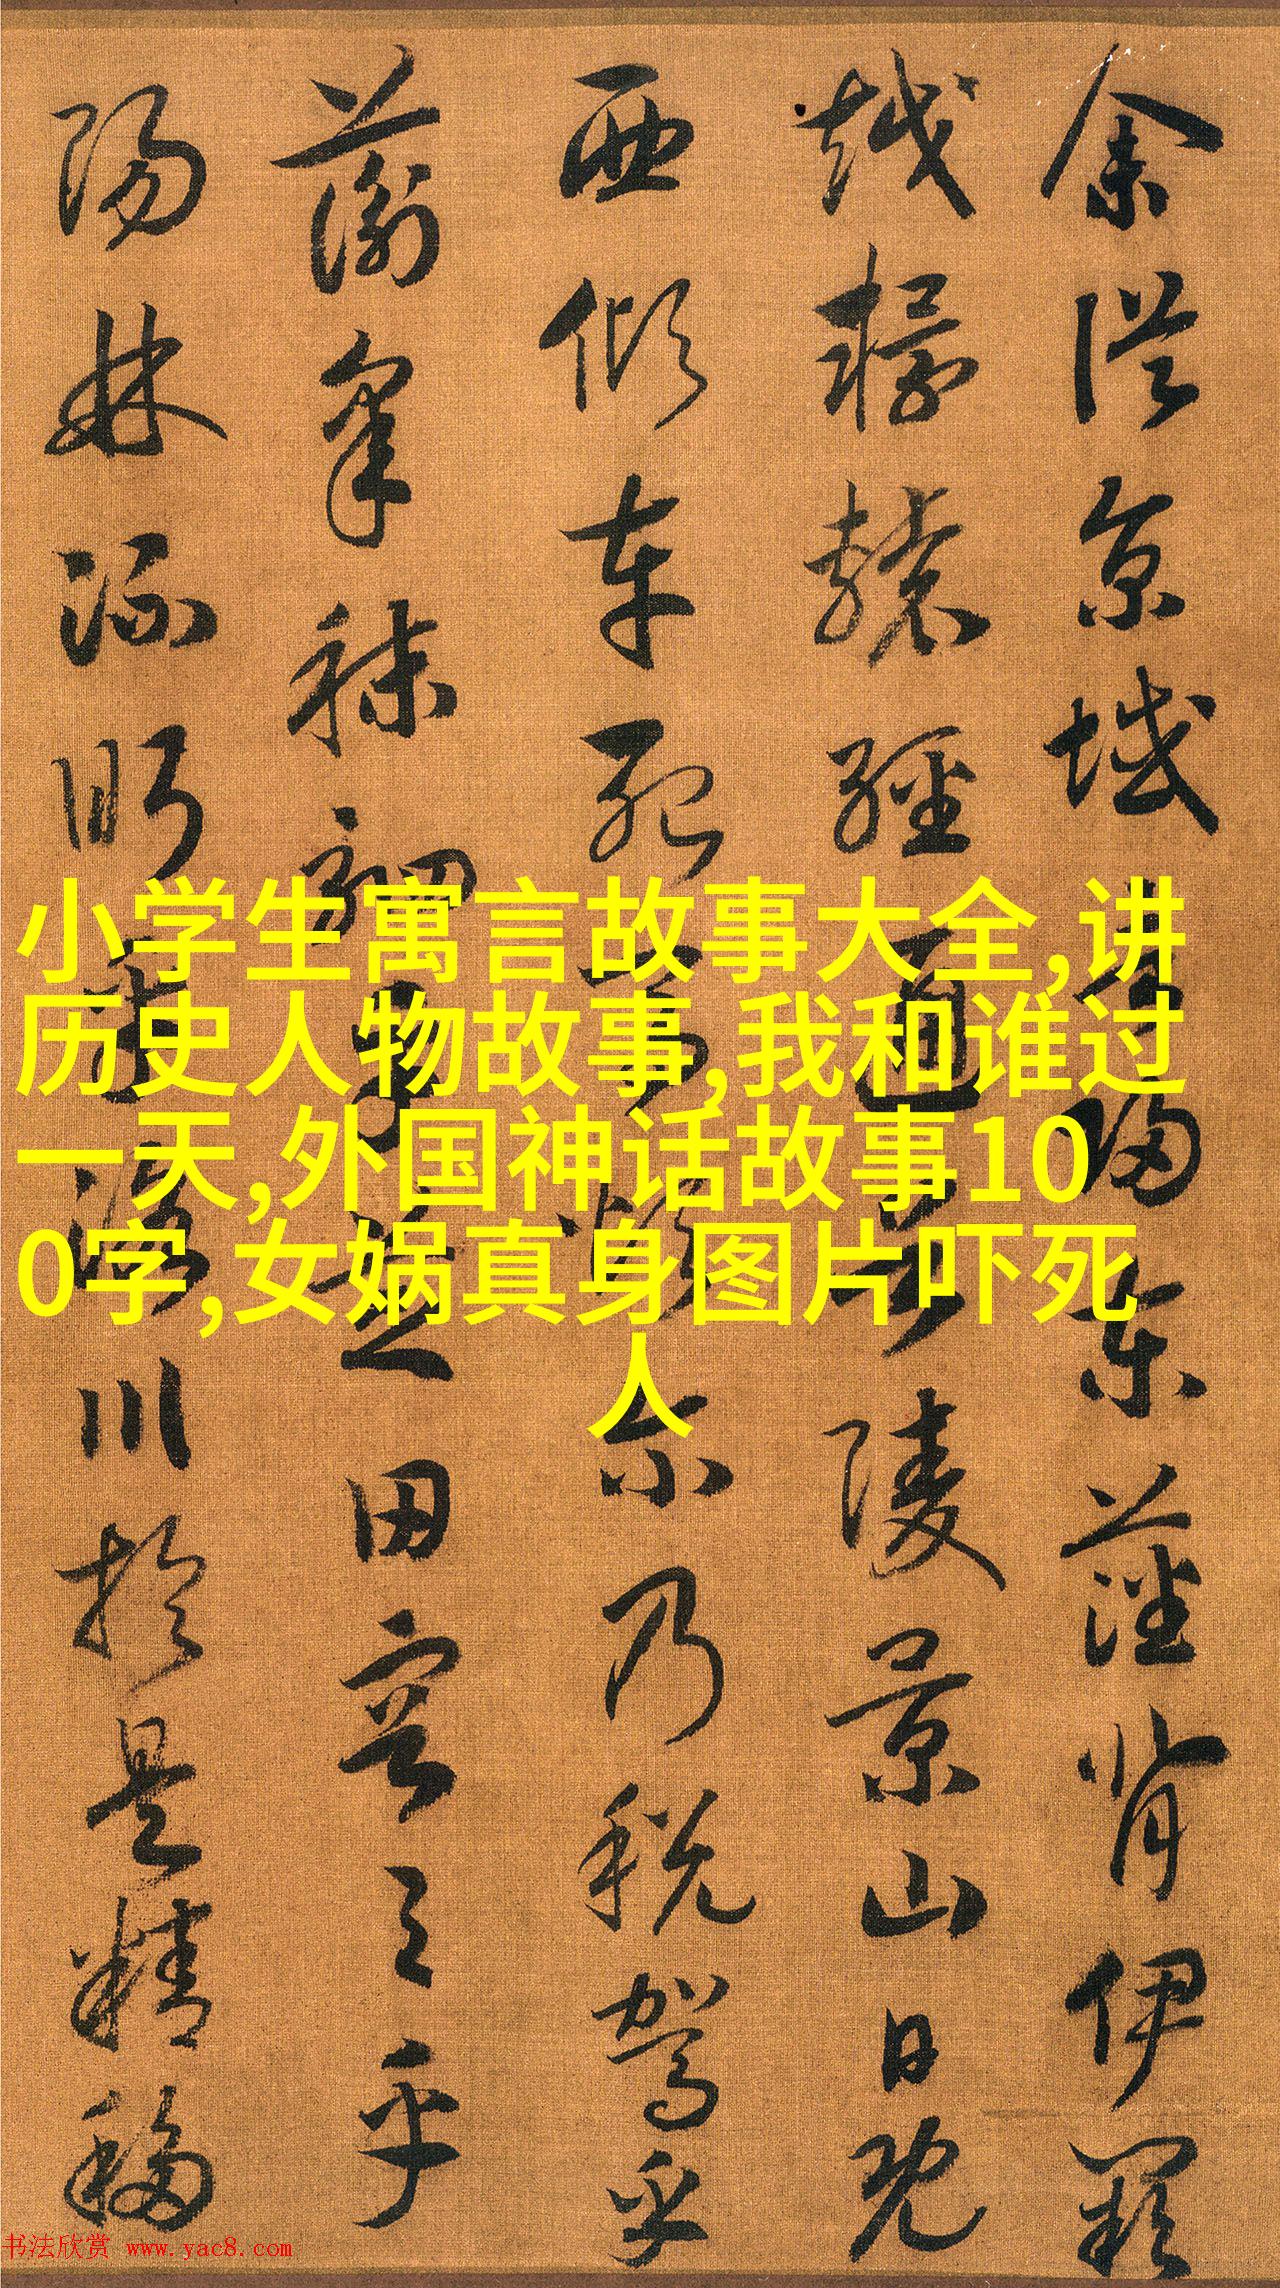 余從京域言歸東藩背伊闕
越轘轅經通谷陵景山日既
西傾車殆馬煩爾乃稅駕乎
蘅皋秣駟乎芝田容与乎
陽林流眄乎洛川於是精移
小学生寓言故事大全,讲
历史人物故事,我和谁过
一天,外国神话故事10
0字,女娲真身图片吓死
人
书法欣赏 www.yac8.com